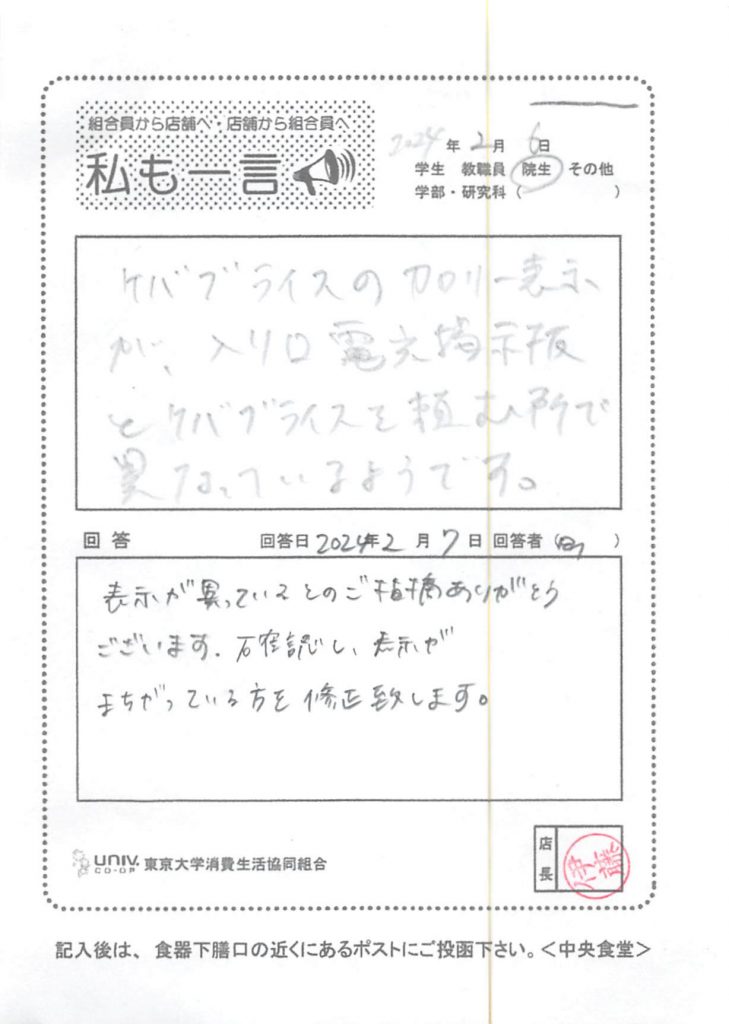 組合員から店舗へ・店舗から組合員へ
私も一言
2024年2月6日
学生 教職員 院生 その他
学部・研究科( )
ケバブライスのカロリー表示
が、入り口電光掲示板
とケバブライスを頼む所で
異なっているようです。
回答 回答日2024年2月7日 回答者( )
表示が異っているとのご指摘ありがとう
ございます。確認し、表示が
まちがっている方を修正致します。
UNIV. CO-OP 東京大学消費生活協同組合
店長 伊藤
記入後は、食器下膳口の近くにあるポストにご投函下さい。<中央食堂>